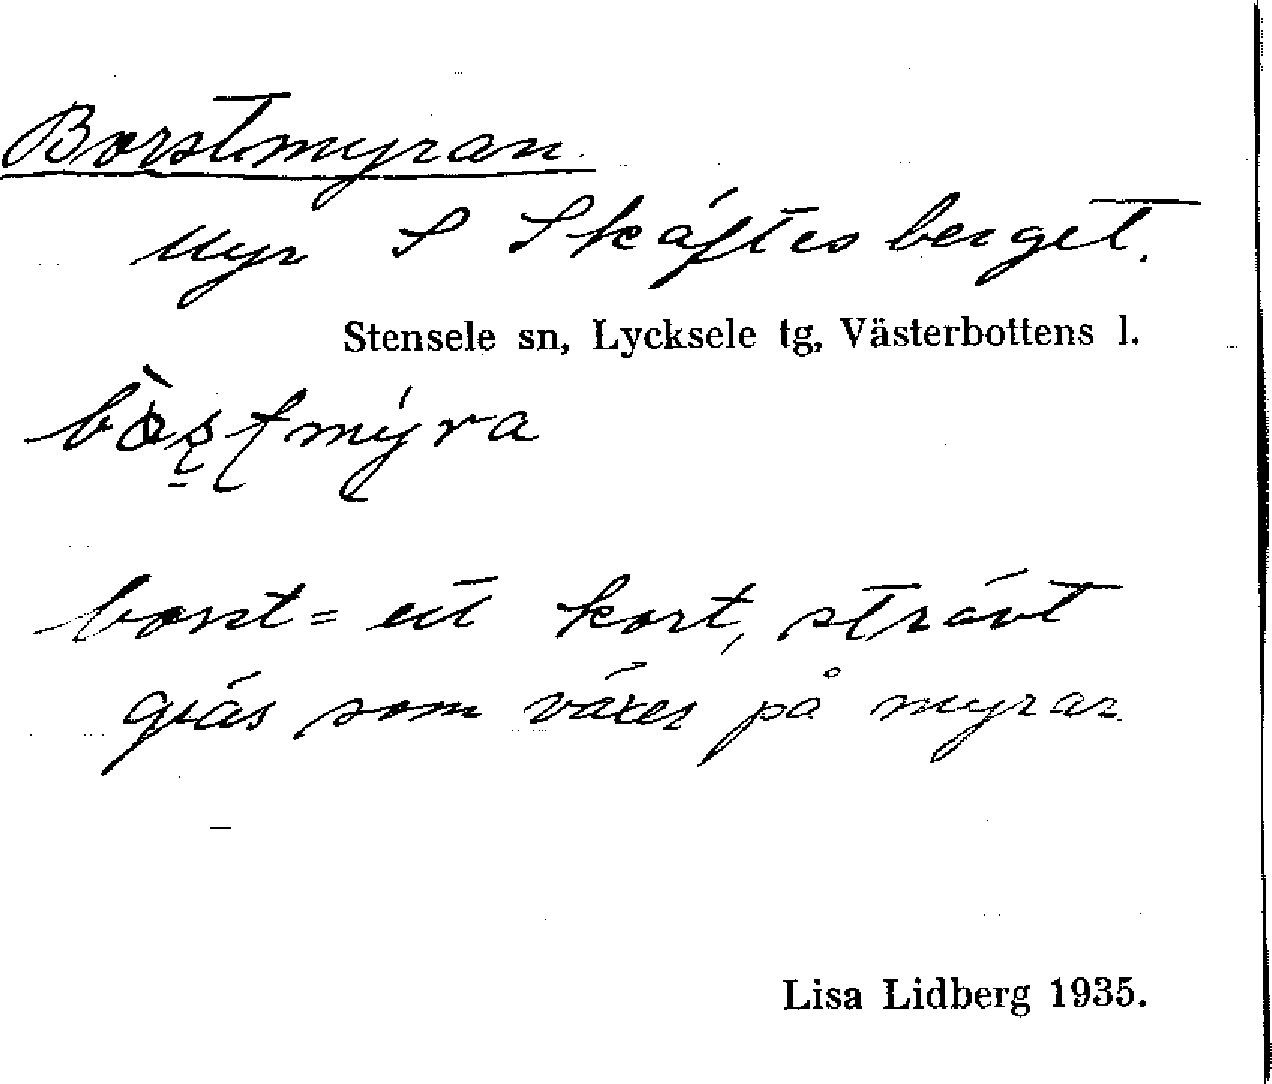 Borstmyran.
Myr S Skäftesberget.
Stensele sn, Lycksele tg, Västerbottens l.
borst = ett kort, strävt
gräs som växer på myrar
Lisa Lidberg 1935.